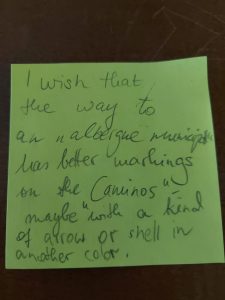 I wish that
the way to
an "albergue municipal
has better markings
on the Caminos"
maybe "with a kind
of arrow or shell in
another color.